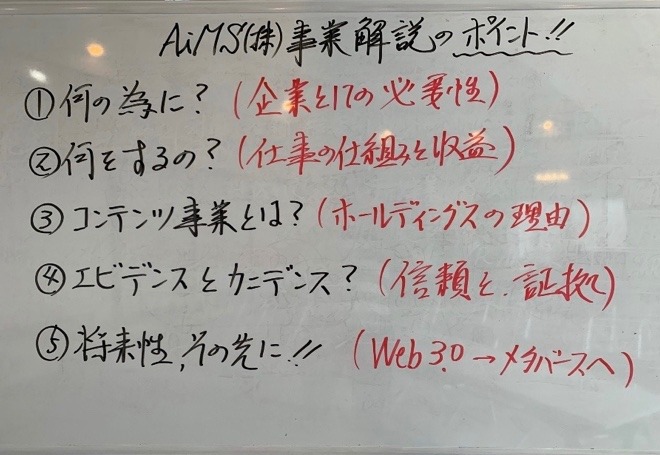 AiMS(株)事業解説のポイント!!
①何の為に?(企業としての必要性)
②何をするの?(仕事の仕組みと収益)
③コンテンツ事業とは?(ホールディングスの理由)
④エビデンスとカニデンス?(信頼と.証拠)
⑤将来性,その先に!!(Web3.0→メタバースへ)